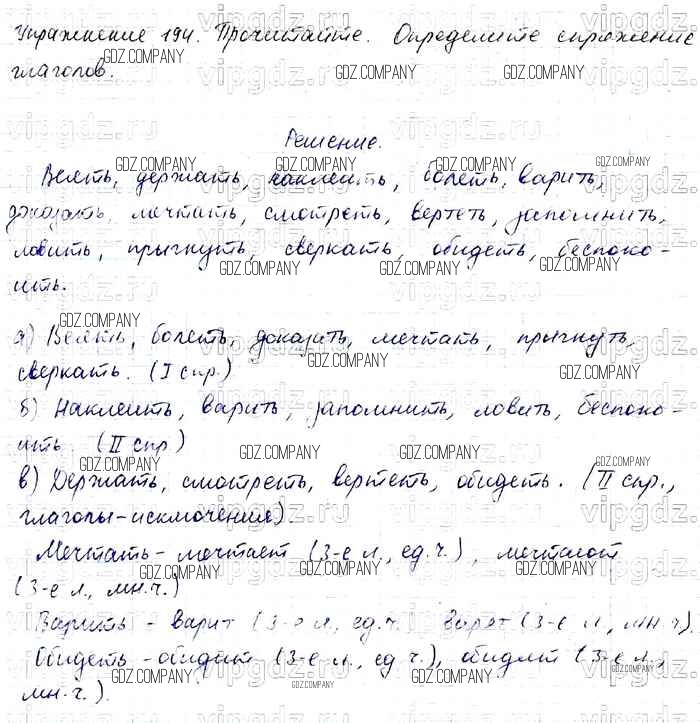 Упражнение 194. Прочитайте. Определите спряжение
глаголов.
Решение.
Веять, держать, наклеить, болеть, варить,
доказать, мечтать, смотреть, вертеть, запомнить,
ловить, прыгнуть, сверкать, обидеть, беспоко-
ить.
а) Веять, болеть, доказать, мечтать, прыгнуть,
сверкать. (I спр.)
б) Наклеить, варить, запомнить, ловить, беспоко-
ить (II спр)
в) Держать, смотреть, вертеть, обидеть. (II спр.,
глаголы-исключение).
Мечтать - мечтает (3-е л., ед.ч.), мечтают
(3-е л., мн.ч.)
Варить - варит (3-е л., ед.ч. варят (3-е л., мн.ч)
Обидеть - обидит (3-е л., ед ч.), обидят (3-е л.,
мн.ч.).